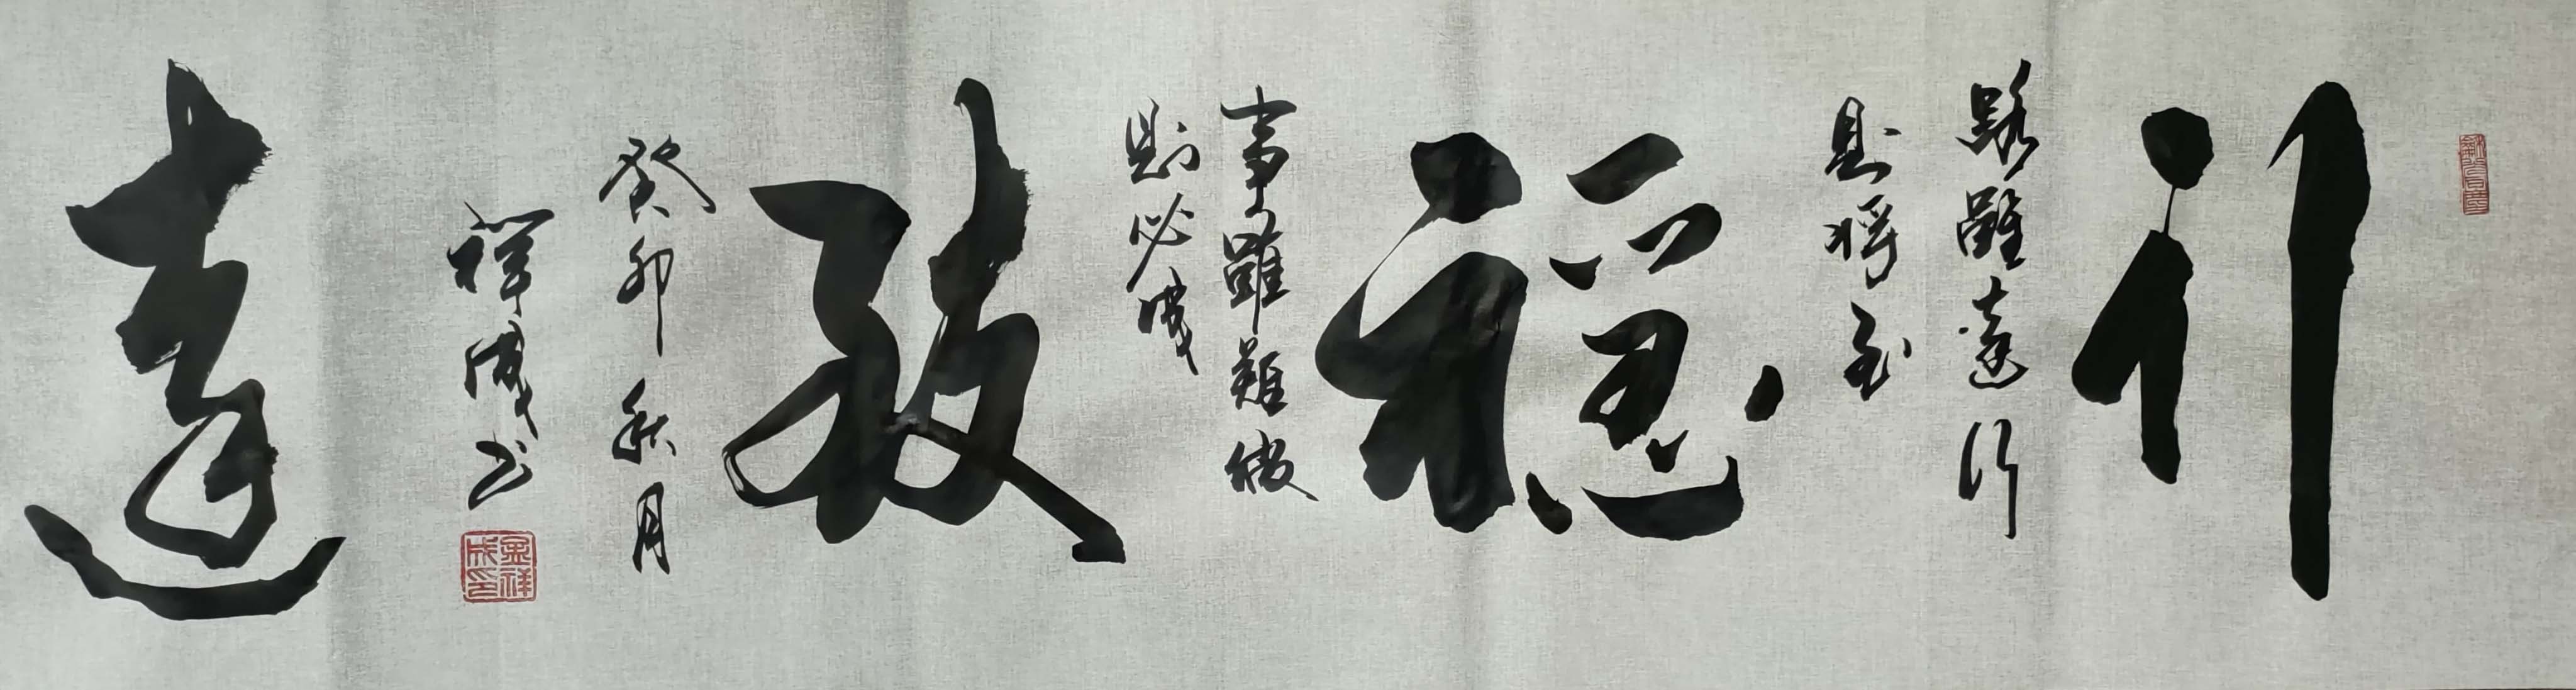 行
路雖遠行
則將至
穩
事雖難做
則必成
致
癸卯秋月
祥成书
遠